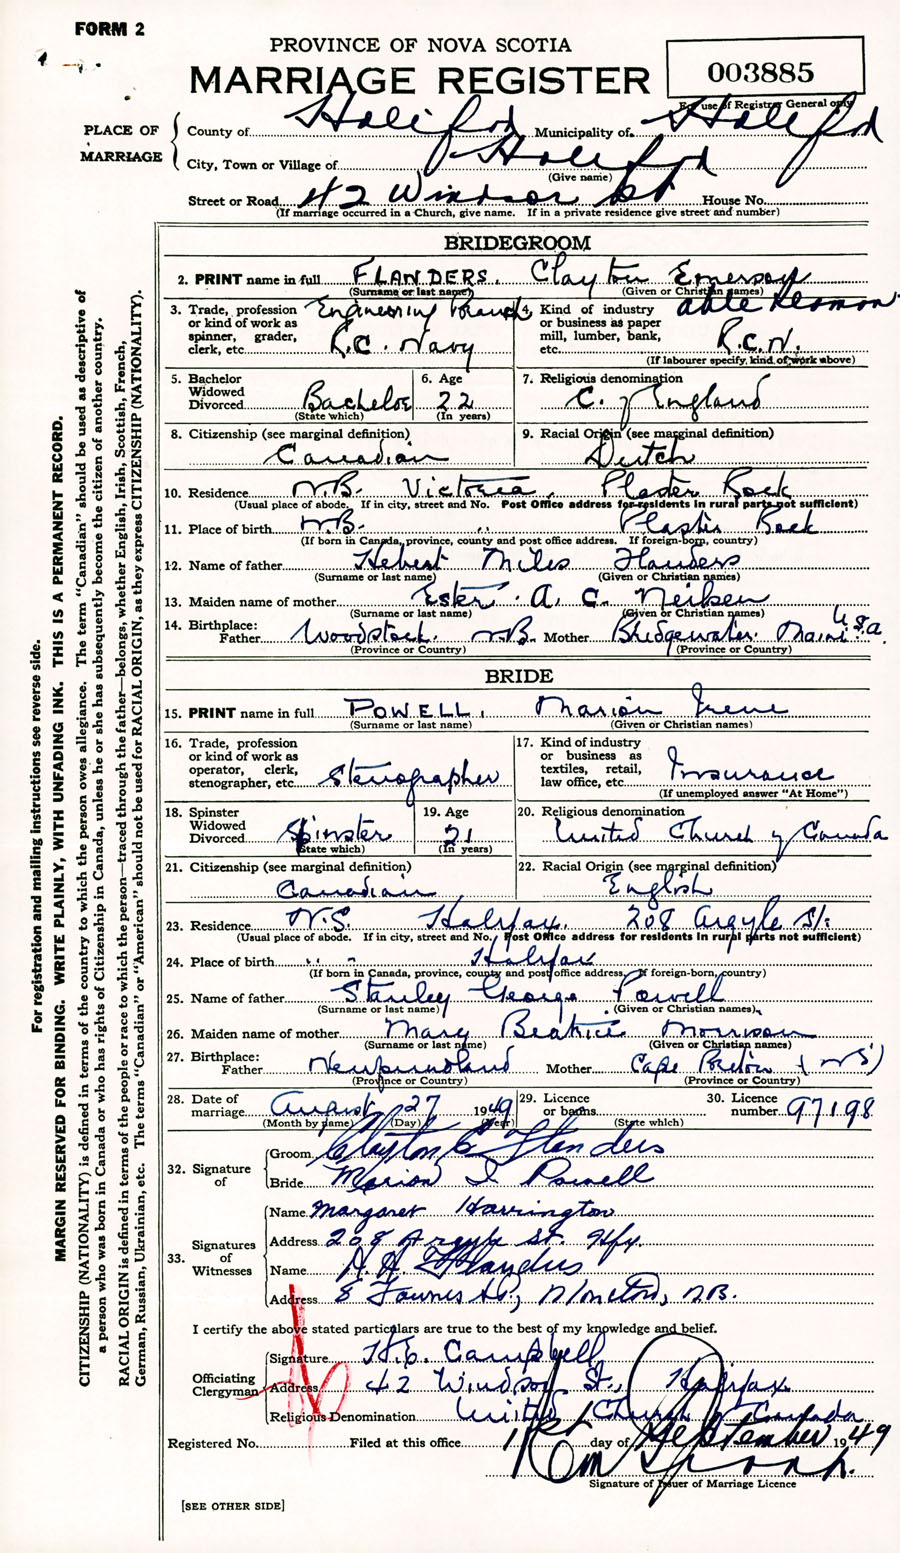 FORM 2
PROVINCE OF NOVA SCOTIA
MARRIAGE REGISTER
003885
For use of Registrar General only
PLACE OF MARRIAGE
County of Halifax Municipality of Halifax
City, Town or Village of Halifax
(Give name)
Street or Road 42 Windsor St House No.
(If marriage occurred in a Church, give name. If in a private residence give street and number)
BRIDEGROOM
2. PRINT name in full FLANDERS, Clayton Emerson
(Surname or last name) (Given or Christian names)
3. Trade, profession or kind of work as spinner, grader, clerk, etc. Engineering Branch R.C. Navy
4. Kind of industry or business as paper mill, lumber, bank, etc. able seaman R.C.N.
(If labourer specify, kind of work above)
5. Bachelor Widowed Divorced Bachelor
(State which)
6. Age 22
(In years)
7. Religious denomination C. of England
8. Citizenship (see marginal definition) Canadian
9. Racial Origin (see marginal definition) Dutch
10. Residence N.B. Victoria, Plaster Rock
(Usual place of abode. If in city, street and No. Post Office address for residents in rural parts not sufficient)
11. Place of birth N.B. " Plaster Rock
(If born in Canada, province, county and post office address. If foreign-born, country)
12. Name of father Hebert Miles Flanders
(Surname or last name) (Given or Christian names)
13. Maiden name of mother Ester A. C.
(Surname or last name) (Given or Christian names)
14. Birthplace: Father Woodstock N.B. Mother Bridgewater Maine U.S.A.
(Province or Country) (Province or Country)
BRIDE
15. PRINT name in full POWELL, Marion Irene
(Surname or last name) (Given or Christian names)
16. Trade, profession or kind of work as operator, clerk, stenographer, etc. Stenographer
17. Kind of industry or business as textiles, retail, law office, etc. Insurance
(If unemployed answer "At Home")
18. Spinster Widowed Divorced Spinster
(State which)
19. Age 21
(In years)
20. Religious denomination United Church of Canada
21. Citizenship (see marginal definition) Canadian
22. Racial Origin (see marginal definition) English
23. Residence N.S. Halifax, 208 Argyle St.
(Usual place of abode. If in city, street and No. Post Office address for residents in rural parts not sufficient)
24. Place of birth " " Halifax
(If born in Canada, province, county and post office address. If foreign-born, country)
25. Name of father Stanley George Powell
(Surname or last name) (Given or Christian names)
26. Maiden name of mother Mary Beatrice Morrison
(Surname or last name) (Given or Christian names)
27. Birthplace: Father Newfoundland Mother Cape Breton (NS)
(Province or Country) (Province or Country)
28. Date of marriage August 27 1949
(Month by name) (Day) (Year)
29. Licence or banns
(State which)
30. Licence number 97198
32. Signature of
Groom Clayton E Flanders
Bride Marion I Powell
33. Signatures of Witnesses
Name Margaret Harrington
Address 208 Argyle St. Hfx.
Name A. A. Flanders
Address 8 St., Moncton, N.B.
I certify the above stated particulars are true to the best of my knowledge and belief.
Officiating Clergyman
Signature H.E. Campbell
Address 42 Windsor St., Halifax
Religious Denomination United Church of Canada
Registered No. Filed at this office 1st day of September 1949
Signature of Issuer of Marriage Licence
[SEE OTHER SIDE]
For registration and mailing instructions see reverse side.
MARGIN RESERVED FOR BINDING. WRITE PLAINLY, WITH UNFADING INK. THIS IS A PERMANENT RECORD.
CITIZENSHIP (NATIONALITY) is defined in terms of the country to which the person owes allegiance. The term "Canadian" should be used as descriptive of
a person who was born in Canada or who has rights of Citizenship in Canada, unless he or she has subsequently become the citizen of another country.
RACIAL ORIGIN is defined in terms of the people or race to which the person—traced through the father—belongs, whether English, Irish, Scottish, French,
German, Russian, Ukrainian, etc. The terms "Canadian" or "American" should not be used for RACIAL ORIGIN, as they express CITIZENSHIP (NATIONALITY).